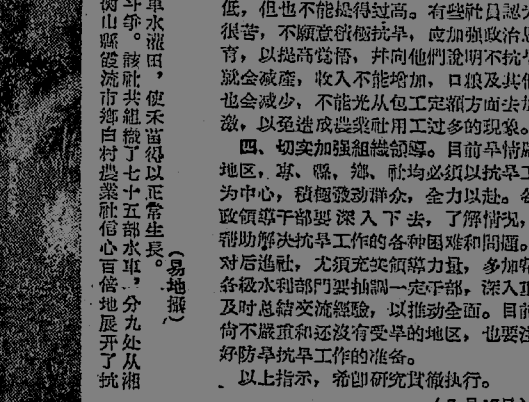 低，但也不能提得过高。有些社員認
很苦，不願意积極抗旱，应加强政治
育，以提高觉悟，并向他們說明不抗
就会减產，收入不能增加，口粮及其
也会减少，不能光从包工定額方面去
激，以免造成農業社用工过多的现象。
四、切实加强組織領導。目前旱情
地区，專、縣、鄉、社均必須以抗旱工
为中心，積極發动群众，全力以赴。
政領導干部要深入下去，了解情况，
帮助解决抗旱工作的各种困难和問題。
对后進社，尤須充实領導力量，多加
各級水利部門要抽調一定干部，深入
及时总結交流經驗，以推动全面。目前
尚不嚴重和还沒有受旱的地区，也要
好防旱抗旱工作的准备。
以上指示，希卽研究貫徹执行。
車水灌田，使禾苗得以正常生長。
（易地攝）
斗爭。該社共組織了七十五部水車，分九处从湘
衡山縣霞流市鄉白村農業社信心百倍地展开了抗